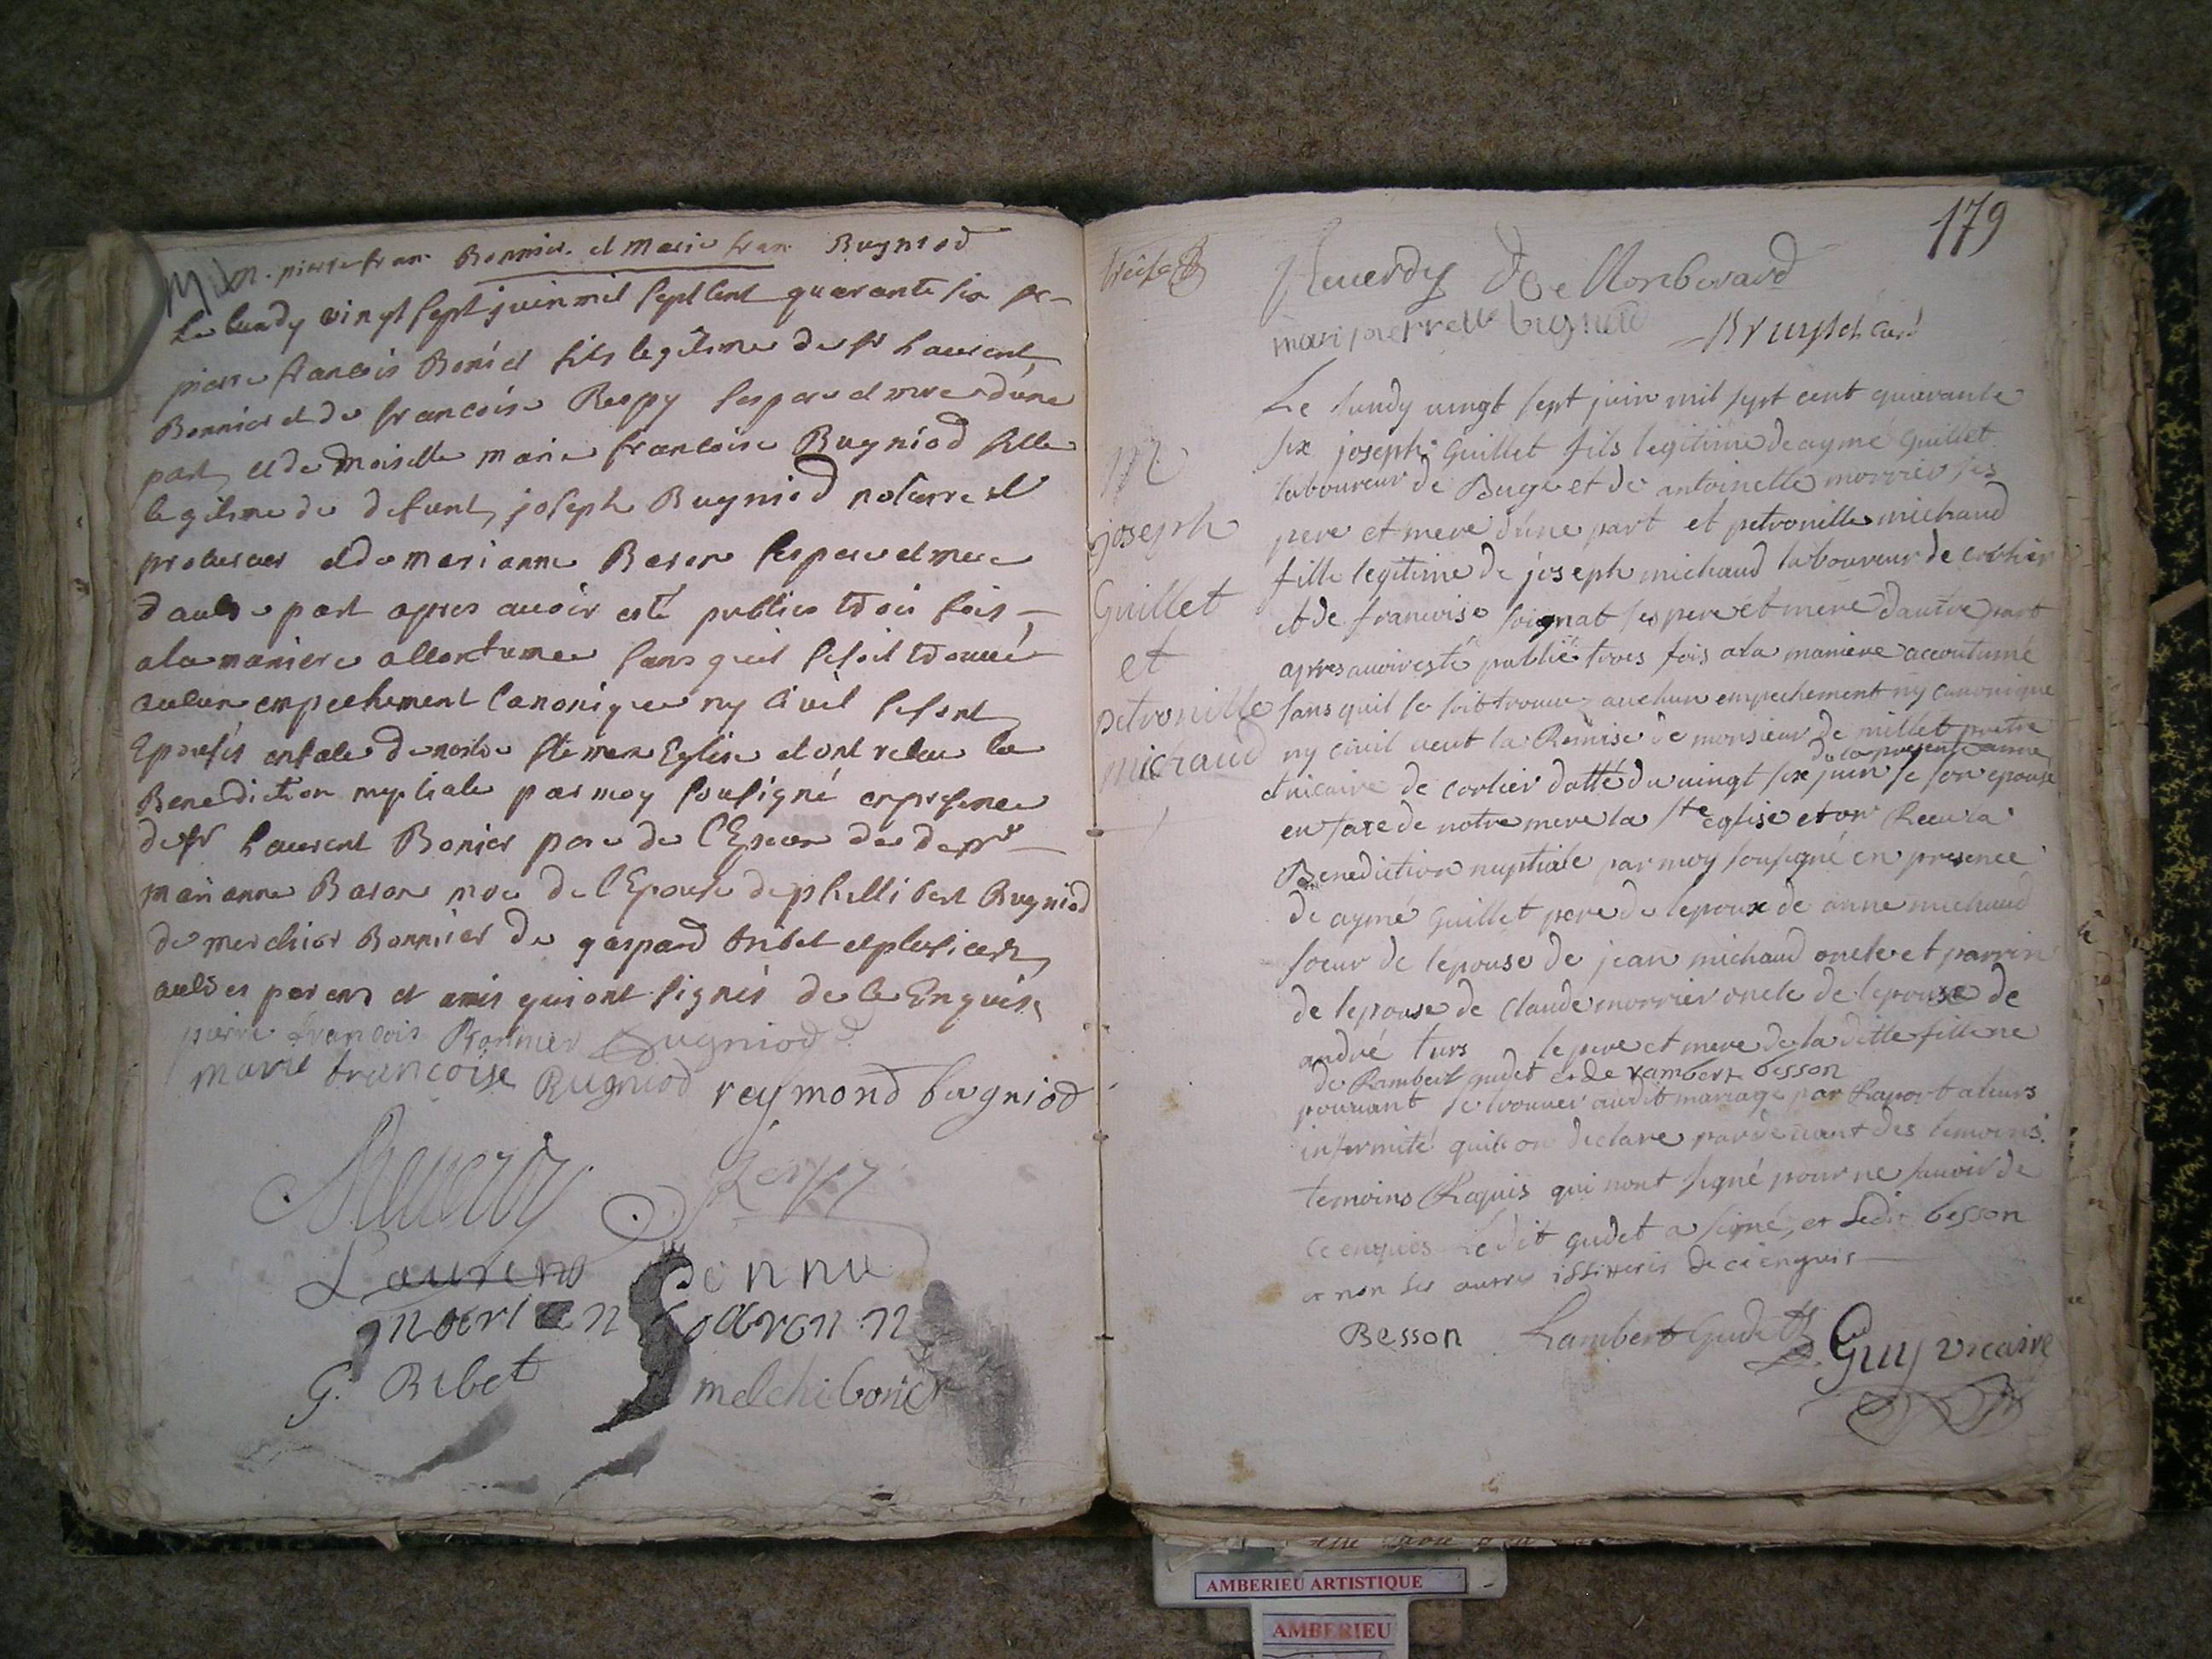 M. pierre fran. Bonnier. et Marie fran. Bugniod
Le lundy vingt sept juin mil sept cent quarante six sr
pierre francois Boniér fils legitime de sr Laurent
Bonnier et de francoise Respy ses pere et mere d'une
part, et de demoiselle marie francoise Bugniod fille
legitime de defunt, joseph Bugniod notaire et
procureur et de marianne Baron ses pere et mere
d'autre part apres avoir esté publies trois fois
a la maniere accoutumee sans quil se soit trouvé
aucun empechement canonique ny civil se sont
Epousés en face de nostre ste mere Eglise et ont receu la
Benediction nuptiale par moy sousigné en presence
de sr Laurent Bonier pere de l'Epoux de
marianne Baron mere de l'Epouse de phillibert Bugniod
de merchior Bonnier de gaspard ribet et plusieurs
autres parens et amis qui ont signés de ce Enquis.
pierre francois Bonnier Bugniod
marie francoise Bugniod reymond bugniod
Reverdy Respy
Laurens bonnie
marian baron
G. Ribet melchi bonier
179
Reverdy De Montberard
mari pierrette bugniod
Bruyset curé
M.
joseph
Guillet
et
petronille
michaud
Le lundy vingt sept juin mil sept cent quarante
six joseph Guillet fils legitime de aymé Guillet
laboureur de Buge et de antoinette morrier ses
pere et mere d'une part et petronille michaud
fille legitime de joseph michaud laboureur de corlier
et de francoise soignat ses pere et mere d'autre part
apres avoir esté publié trois fois a la maniere accoutumé
sans quil se soit trouvé auchun empechement ny canonique
ny civil veut la Remise de monsieur de millet pretre
de la presente année
et vicaire de corlier datté du vingt six juin se son epousé
en face de notre mere la ste eglise et on Receu la
Benediction nuptiale par moy sousigné en presence
de aymé Guillet pere de lepoux de anne michaud
soeur de lepouse de jean michaud oncle et parrin
de lepouse de Claude morrier oncle de lepouse de
andré turs le pere et mere de la ditte fille ne
de Rambert gudet et de rambert besson
pouvant se trouver audit mariage par Raport a leurs
infirmité quils on declare par devant des temoins.
temoins Requis qui nont signé pour ne savoir de
ce enquis Ledit gudet a signé, et Ledit besson
et non les autres de ce enquis
Besson Lambert Gudet
Guy vicaire
AMBERIEU ARTISTIQUE
AMBERIEU